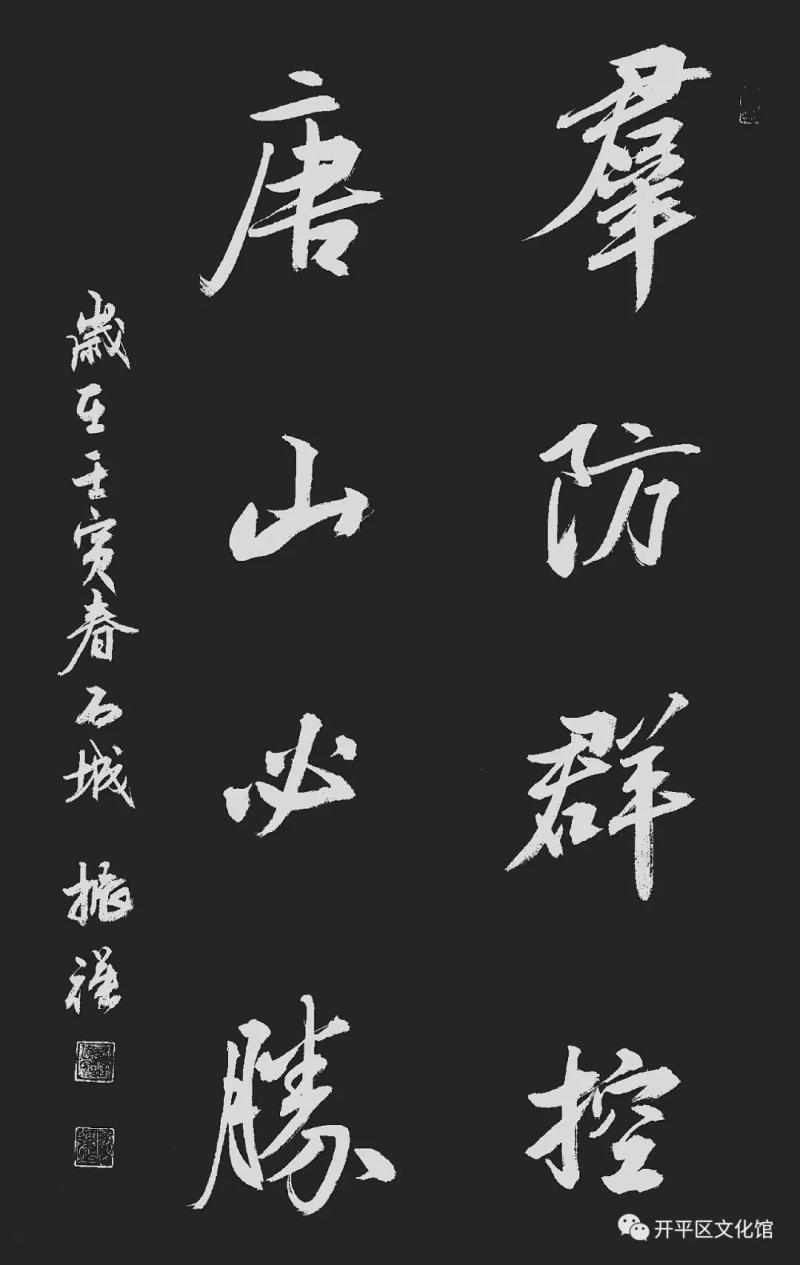 羣防群控
唐山必勝
歲在壬寅春石城 振禄
开平区文化馆